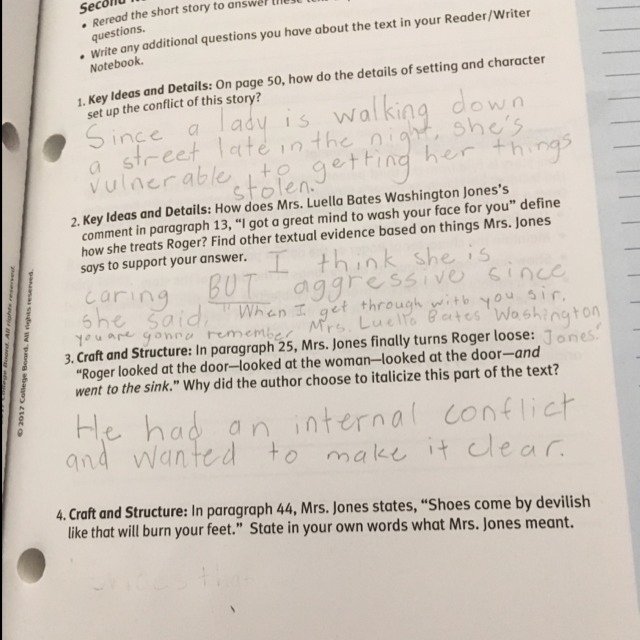 Second
• Reread the short story to answer these
questions.
• Write any additional questions you have about the text in your Reader/Writer
Notebook.
1. Key Ideas and Details: On page 50, how do the details of setting and character
set up the conflict of this story?
Since a lady is walking down
a street late in the night, she's
vulnerable to getting her things
stolen.
2. Key Ideas and Details: How does Mrs. Luella Bates Washington Jones's
comment in paragraph 13, “I got a great mind to wash your face for you” define
how she treats Roger? Find other textual evidence based on things Mrs. Jones
says to support your answer. I think she is
caring BUT aggressive since
she said, "When I get through with you sir.
you are gonna remember Mrs. Luella Bates Washington
Jones."
3. Craft and Structure: In paragraph 25, Mrs. Jones finally turns Roger loose:
“Roger looked at the door—looked at the woman—looked at the door—and
went to the sink.” Why did the author choose to italicize this part of the text?
He had an internal conflict
and wanted to make it clear.
4. Craft and Structure: In paragraph 44, Mrs. Jones states, “Shoes come by devilish
like that will burn your feet.” State in your own words what Mrs. Jones meant.
© 2017 College Board. All rights reserved.